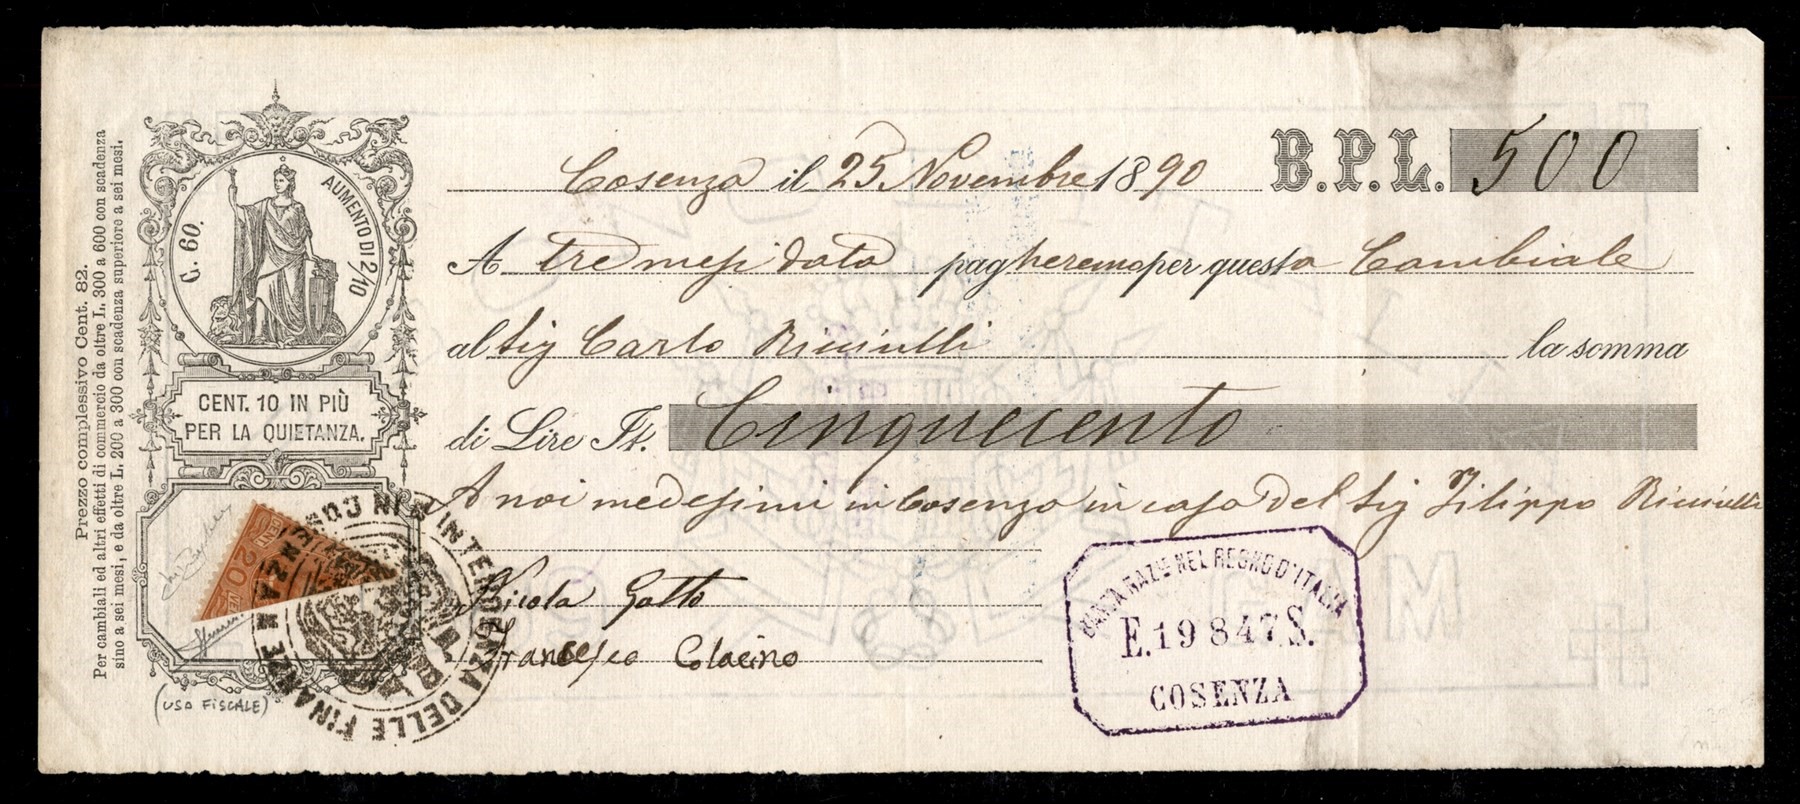 Cosenza il 25 Novembre 1890 B.P.L. 500
A tre mesi data pagheremo per questa Cambiale
al Sig Carlo Ricciulli la somma
di Lire It. Cinquecento
A noi medesimi in Cosenza in casa del Sig Filippo Ricciulli
Nicola Gatto
Francesco Colacino
Prezzo complessivo Cent. 82.
Per cambiali ed altri effetti di commercio da oltre L. 300 a 600 con scadenza
sino a sei mesi, e da oltre L. 200 a 300 con scadenza superiore a sei mesi.
C. 60.
AUMENTO DI 2/10
CENT. 10 IN PIÙ
PER LA QUIETANZA.
CENT 20
INTENDENZA DELLE FINANZE
(USO FISCALE)
BANCA NAZLE NEL REGNO D'ITALIA
E.19 847 S.
COSENZA